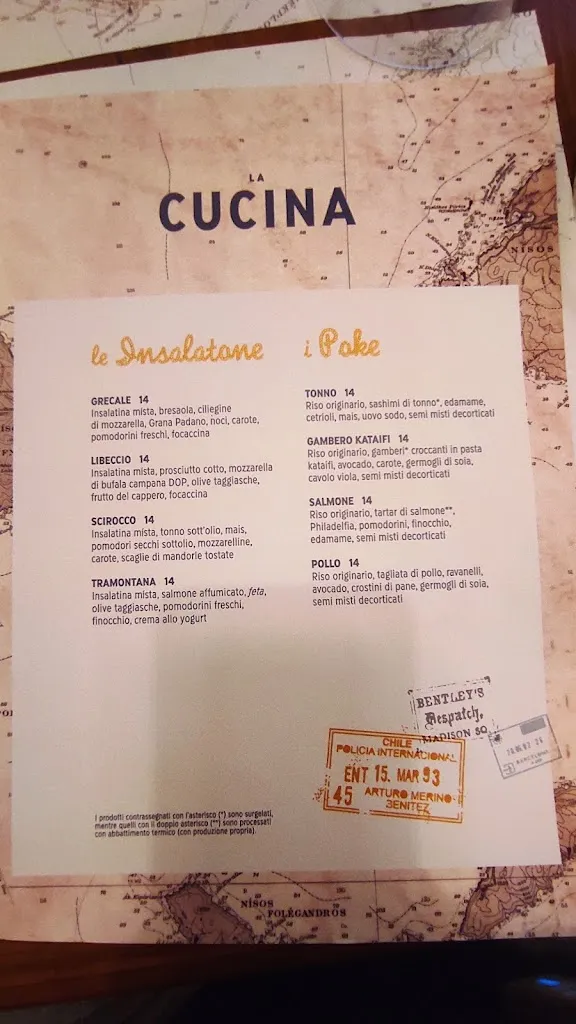 LA
CUCINA
le Insalatone
GRECALE 14
Insalatina mista, bresaola, ciliegine
di mozzarella, Grana Padano, noci, carote,
pomodorini freschi, focaccina
LIBECCIO 14
Insalatina mista, prosciutto cotto, mozzarella
di bufala campana DOP, olive taggiasche,
frutto del cappero, focaccina
SCIROCCO 14
Insalatina mista, tonno sott'olio, mais,
pomodori secchi sottolio, mozzarelline,
carote, scaglie di mandorle tostate
TRAMONTANA 14
Insalatina mista, salmone affumicato, feta,
olive taggiasche, pomodorini freschi,
finocchio, crema allo yogurt
i Poke
TONNO 14
Riso originario, sashimi di tonno*, edamame,
cetrioli, mais, uovo sodo, semi misti decorticati
GAMBERO KATAIFI 14
Riso originario, gamberi* croccanti in pasta
kataifi, avocado, carote, germogli di soia,
cavolo viola, semi misti decorticati
SALMONE 14
Riso originario, tartar di salmone**,
Philadelfia, pomodorini, finocchio,
edamame, semi misti decorticati
POLLO 14
Riso originario, tagliata di pollo, ravanelli,
avocado, crostini di pane, germogli di soia,
semi misti decorticati
BENTLEY'S
Despatch,
MADISON SQ
CHILE
POLICIA INTERNACIONAL
ENT 15. MAR 93
45 ARTURO MERINO
BENITEZ
BARCELONA
I prodotti contrassegnati con l'asterisco (*) sono surgelati,
mentre quelli con il doppio asterisco (**) sono processati
con abbattimento termico (con produzione propria).
NISOS
NÍSOS
FOLÉGANDROS